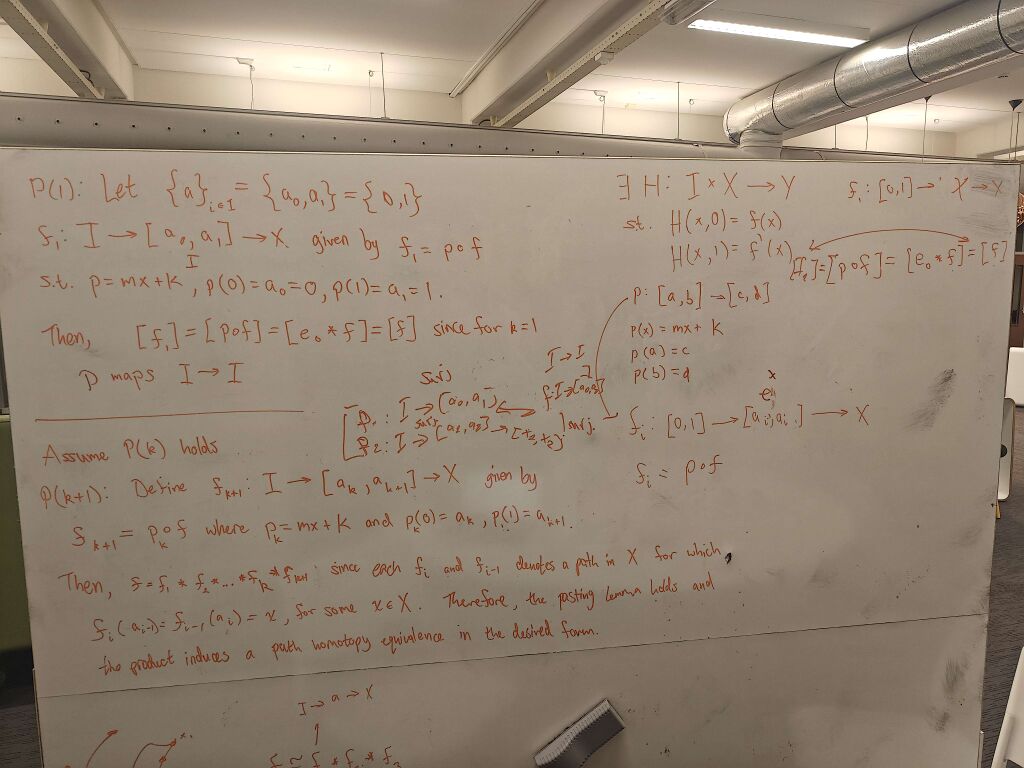 P(1): Let {a}_{i∈I} = {a₀,a₁} = {0,1}
f₁: I → [a₀, a₁] → X given by f₁ = p∘f
I
s.t. p=mx+k, p(0)=a₀=0, p(1)=a₁=1.
Then, [f₁]=[p∘f]=[e₀*f]=[f] since for k=1
p maps I → I
Assume P(k) holds
P(k+1): Define f_{k+1}: I → [a_k, a_{k+1}] → X given by
f_{k+1} = p_k∘f where p_k=mx+k and p_k(0)=a_k, p_k(1)=a_{k+1}.
Then, f=f₁ * f₂ * ... * f_k * f_{k+1} since each f_i and f_{i-1} denotes a path in X for which,
f_i(a_{i-1})=f_{i-1}(a_i)=x, for some x∈X. Therefore, the pasting lemma holds and
the product induces a path homotopy equivalence in the desired form.
I → a → X
∃ H: I × X → Y
s.t. H(x,0) = f(x)
H(x,1) = f'(x)
f_i: [0,1] → X → X
=[p∘f]=[e₀*f]=[f]
p: [a,b] → [c,d]
p(x) = mx + k
p(a) = c
p(b) = d
I → I
surj
p₁: I → [a₀,a₁]
surj
p₂: I → [a₁,a₂] →
surj.
x
f_i: [0,1] → [a_i, a_i] → X
f_i = p∘f